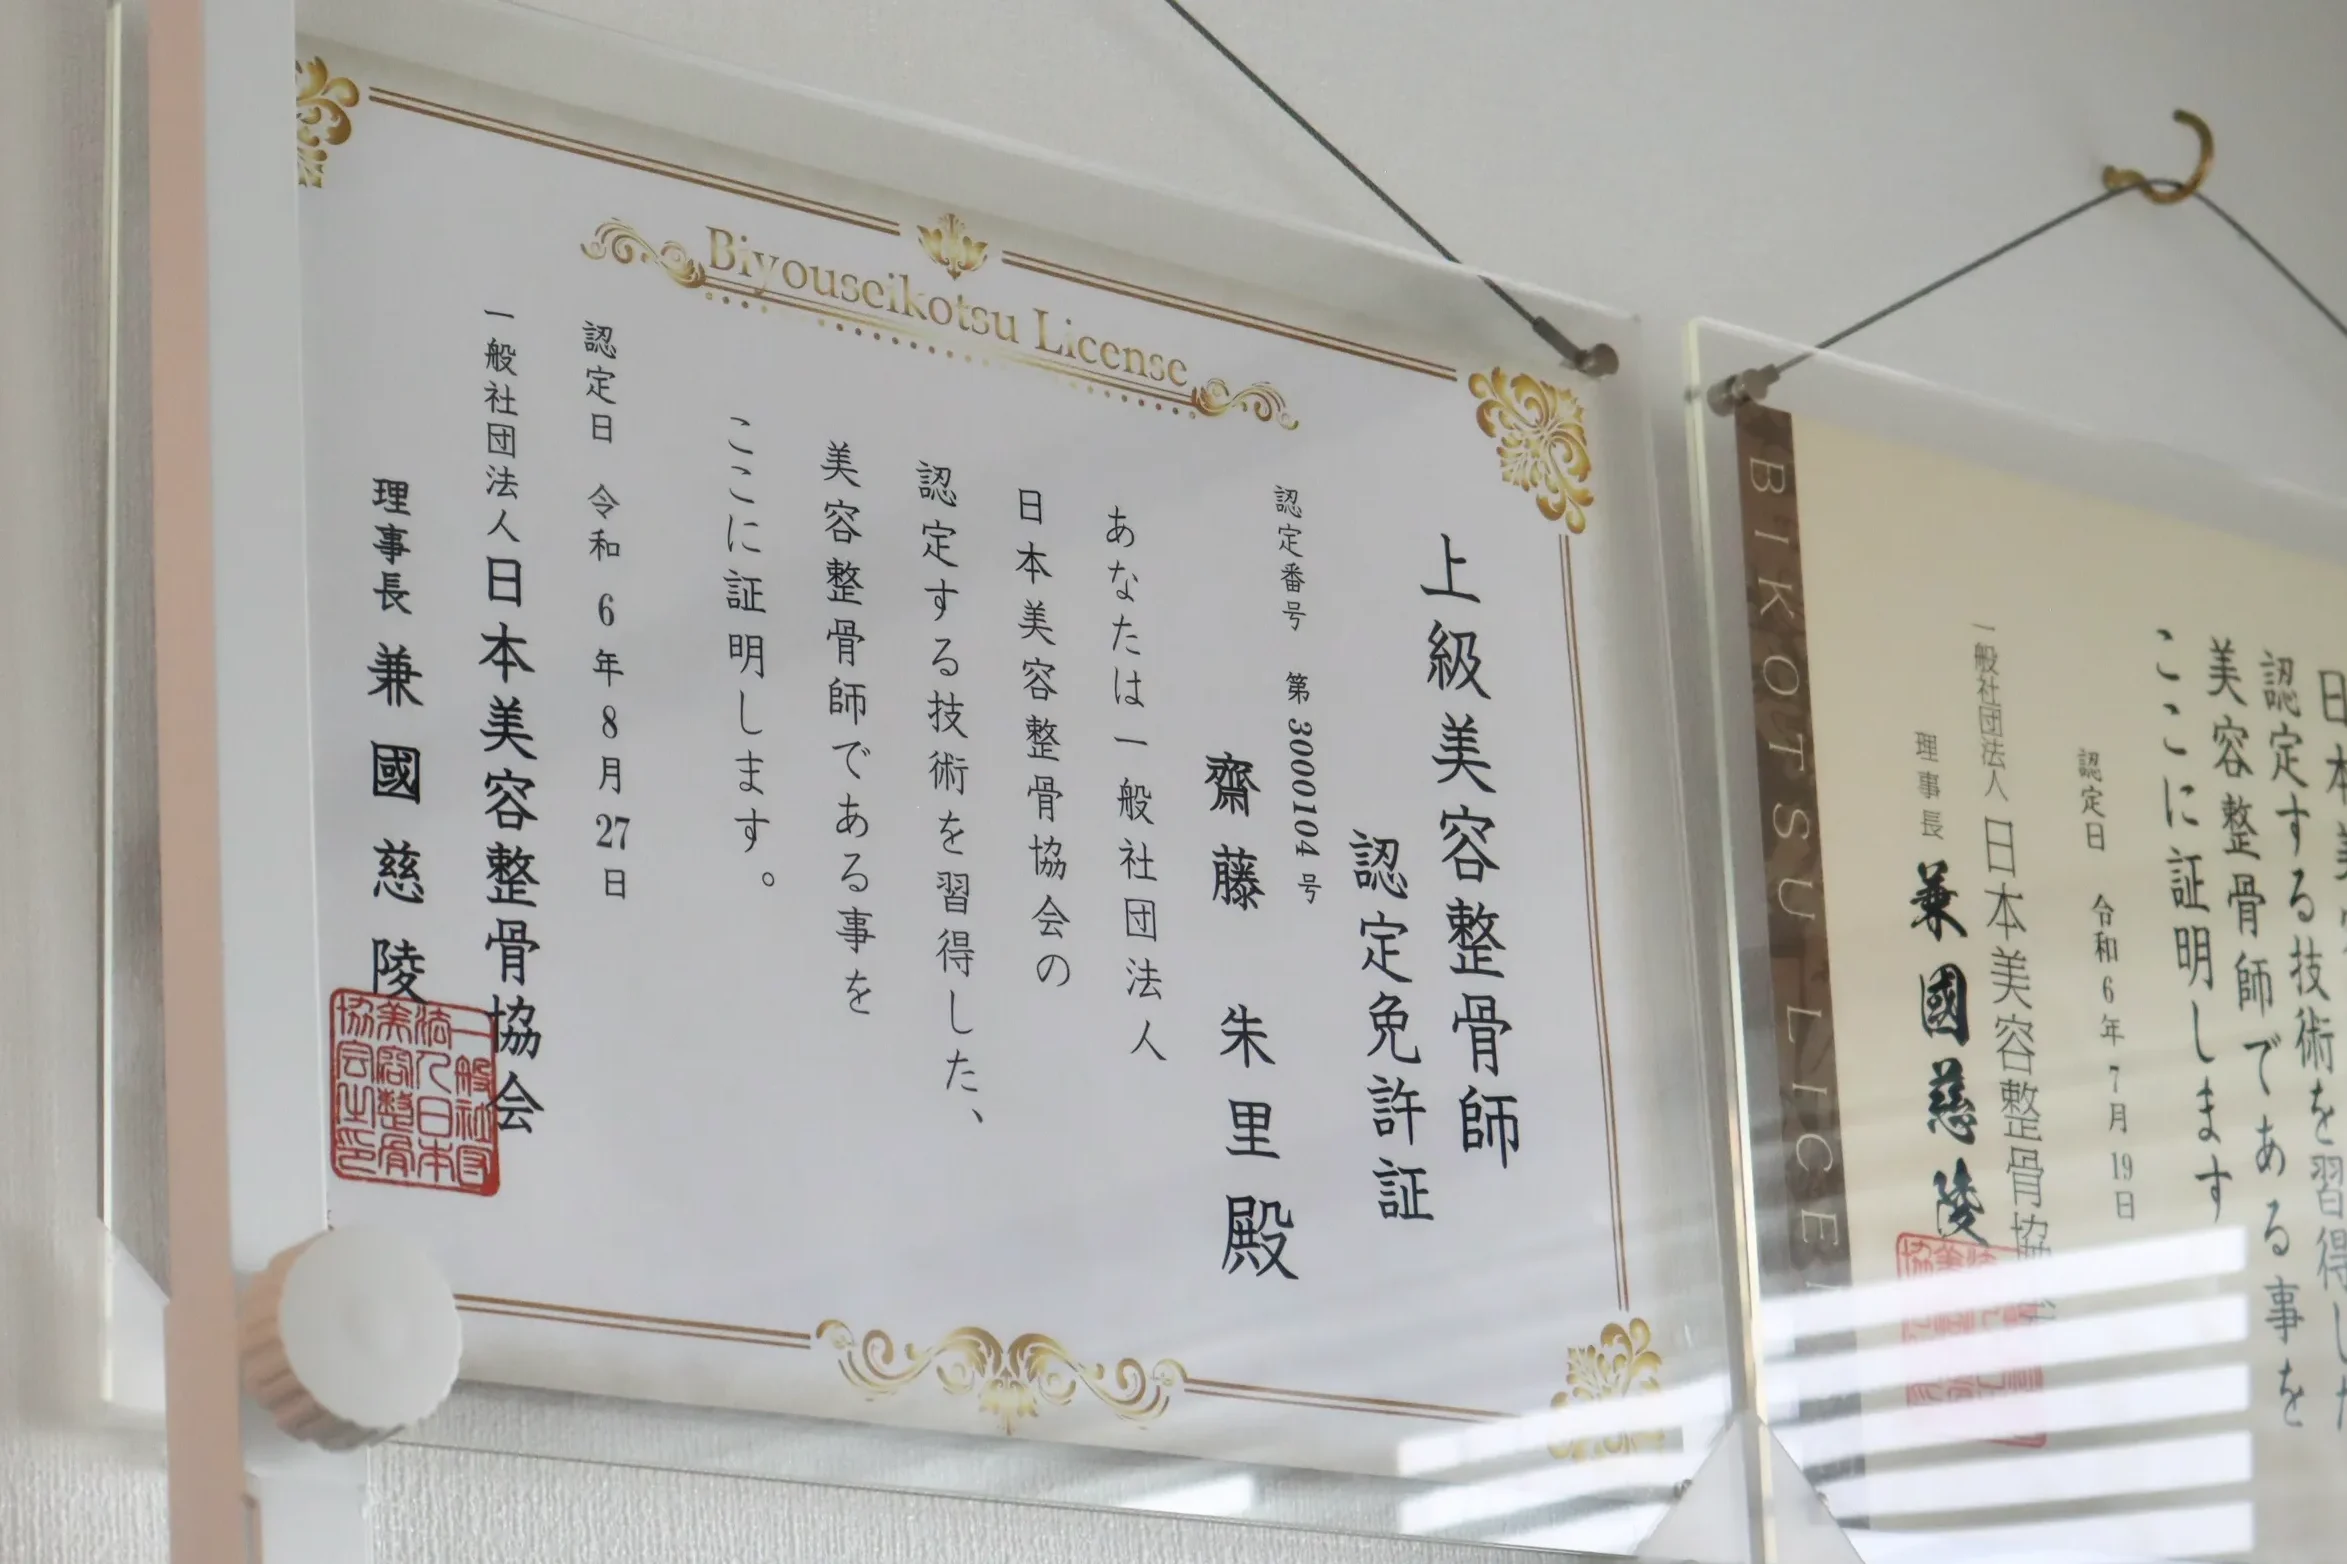 Biyouseikotsu License
上級美容整骨師
認定免許証
認定番号 第3000104号
齋藤 朱里 殿
あなたは一般社団法人
日本美容整骨協会の
認定する技術を習得した、
美容整骨師である事を
ここに証明します。
認定日 令和6年8月27日
一般社団法人日本美容整骨協会
理事長 兼國慈陵
一般社団
法人日本
美容整骨
協会之印
BIKOTSU LICE
日本美
認定する技術を習得した
美容整骨師である事を
ここに証明します
認定日 令和6年7月19日
一般社団法人 日本美容整骨協
理事長 兼國慈陵